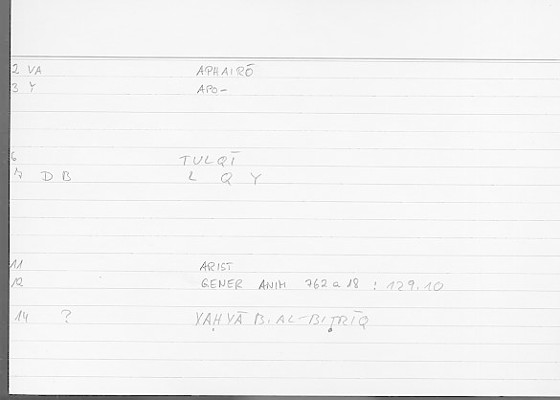 2 VA APHAIRŌ
3 Y APO-
6 TULQĪ
7 DB L Q Y
11 ARIST
12 GENER ANIM 762a18 : 129.10
14 ? YAḤYĀ B. AL-BIṬRĪQ